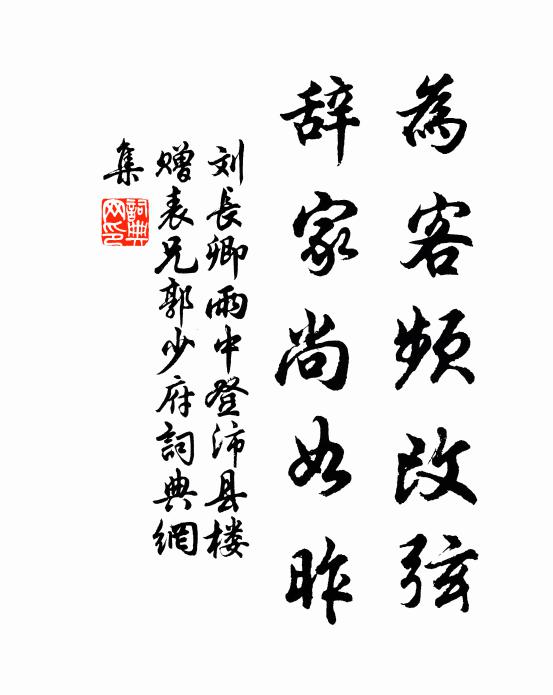 為客頻改弦
辞家尚如昨
刘長卿雨中登沛县楼
贈表兄郭少府詞典網
集
詞典网印